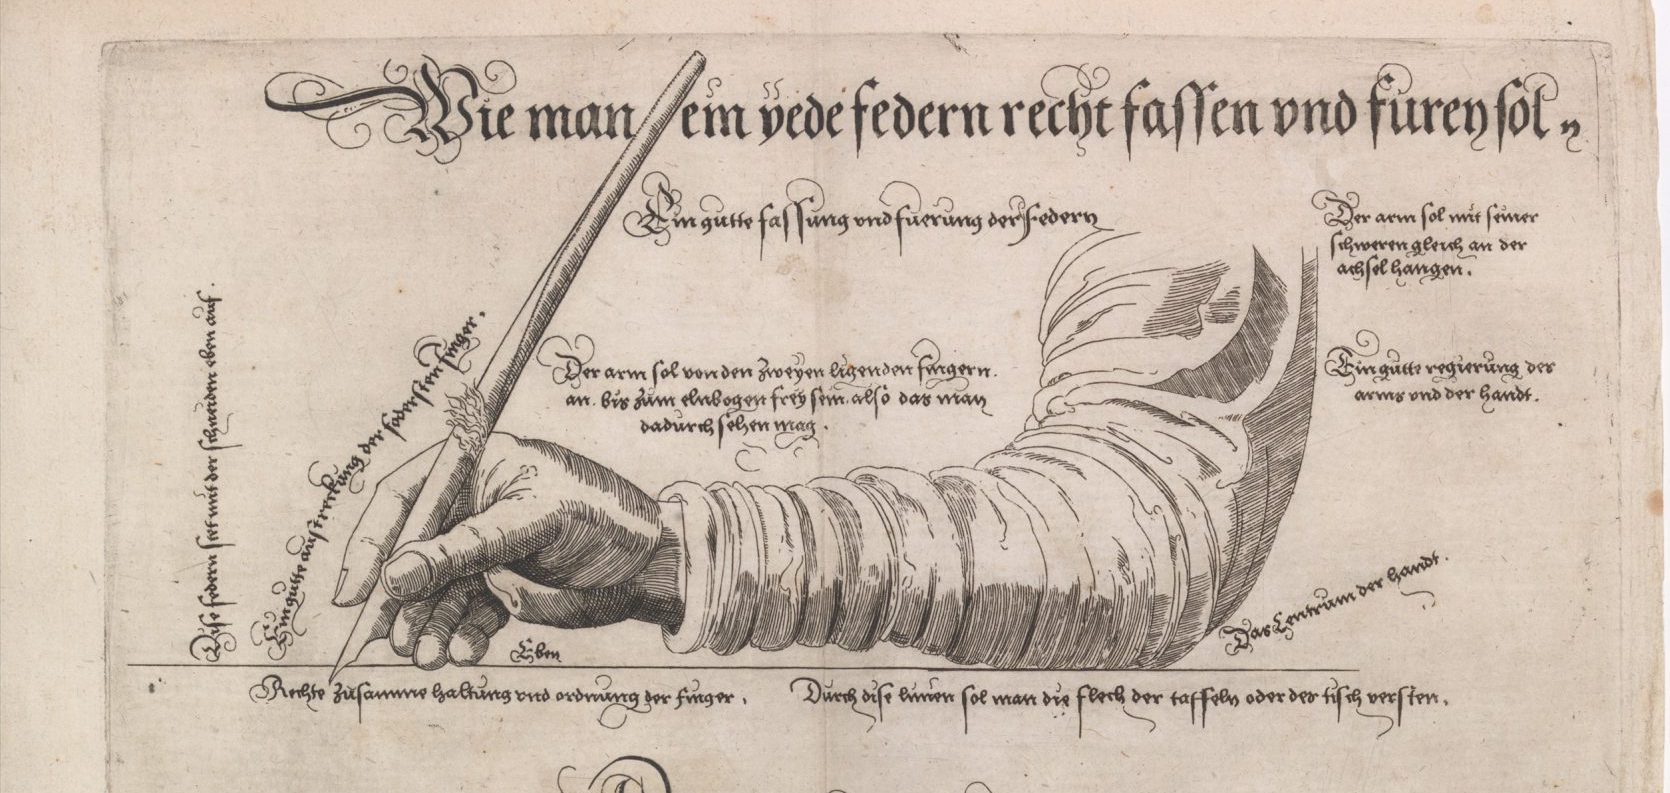 Wie man ein yede federn recht fassen vnd furen sol
Ein gutte fassung vnd fuerung der federn
Der arm sol mit seiner
schweren gleich an der
achsel hangen.
Dise federn stet mit der schneiden eben auf.
Ein gutte ausstreckung der födersten finger.
Der arm sol von den zweyen ligenden fingern.
an. bis zum elnbogen frey sein. also das man
dadurch sehen mag.
Ein gutte regierung des
arms vnd der handt.
Das Centrum der handt.
Eben
Rechte zusamme haltung vnd ordnung der finger.
Durch dise linien sol man die flech der taffeln oder des tisch versten.